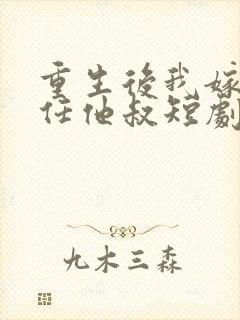 重生後我嫁
任他叔短劇
九木三森